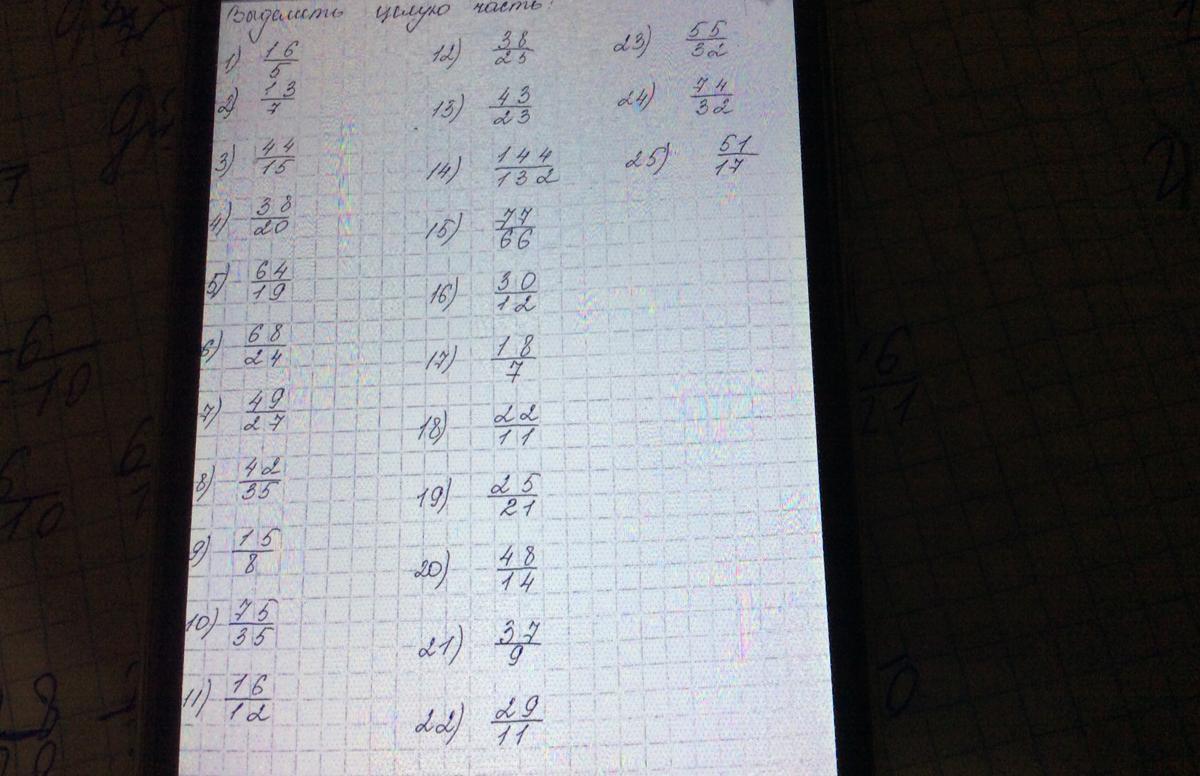 Выделить целую часть:
1) 16/5
2) 13/7
3) 44/15
4) 38/20
5) 64/19
6) 68/24
7) 49/27
8) 42/35
9) 15/8
10) 75/35
11) 16/12
12) 38/25
13) 43/23
14) 144/132
15) 77/66
16) 30/12
17) 18/7
18) 22/11
19) 25/21
20) 48/14
21) 37/9
22) 29/11
23) 55/32
24) 74/32
25) 51/17